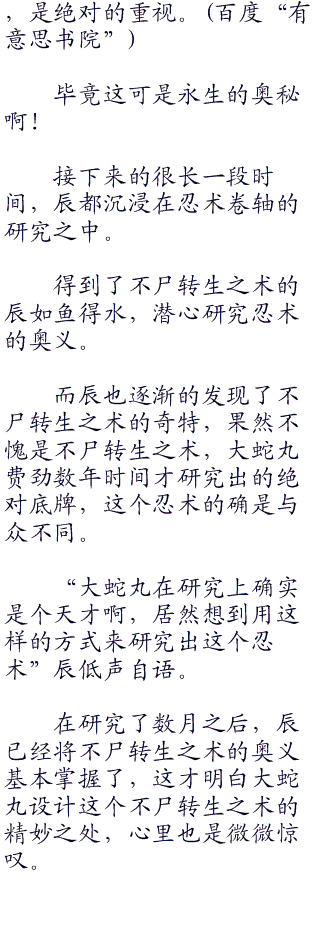 ，是绝对的重视。（百度“有
意思书院”）
毕竟这可是永生的奥秘
啊！
接下来的很长一段时
间，辰都沉浸在忍术卷轴的
研究之中。
得到了不尸转生之术的
辰如鱼得水，潜心研究忍术
的奥义。
而辰也逐渐的发现了不
尸转生之术的奇特，果然不
愧是不尸转生之术，大蛇丸
费劲数年时间才研究出的绝
对底牌，这个忍术的确是与
众不同。
“大蛇丸在研究上确实
是个天才啊，居然想到用这
样的方式来研究出这个忍
术”辰低声自语。
在研究了数月之后，辰
已经将不尸转生之术的奥义
基本掌握了，这才明白大蛇
丸设计这个不尸转生之术的
精妙之处，心里也是微微惊
叹。